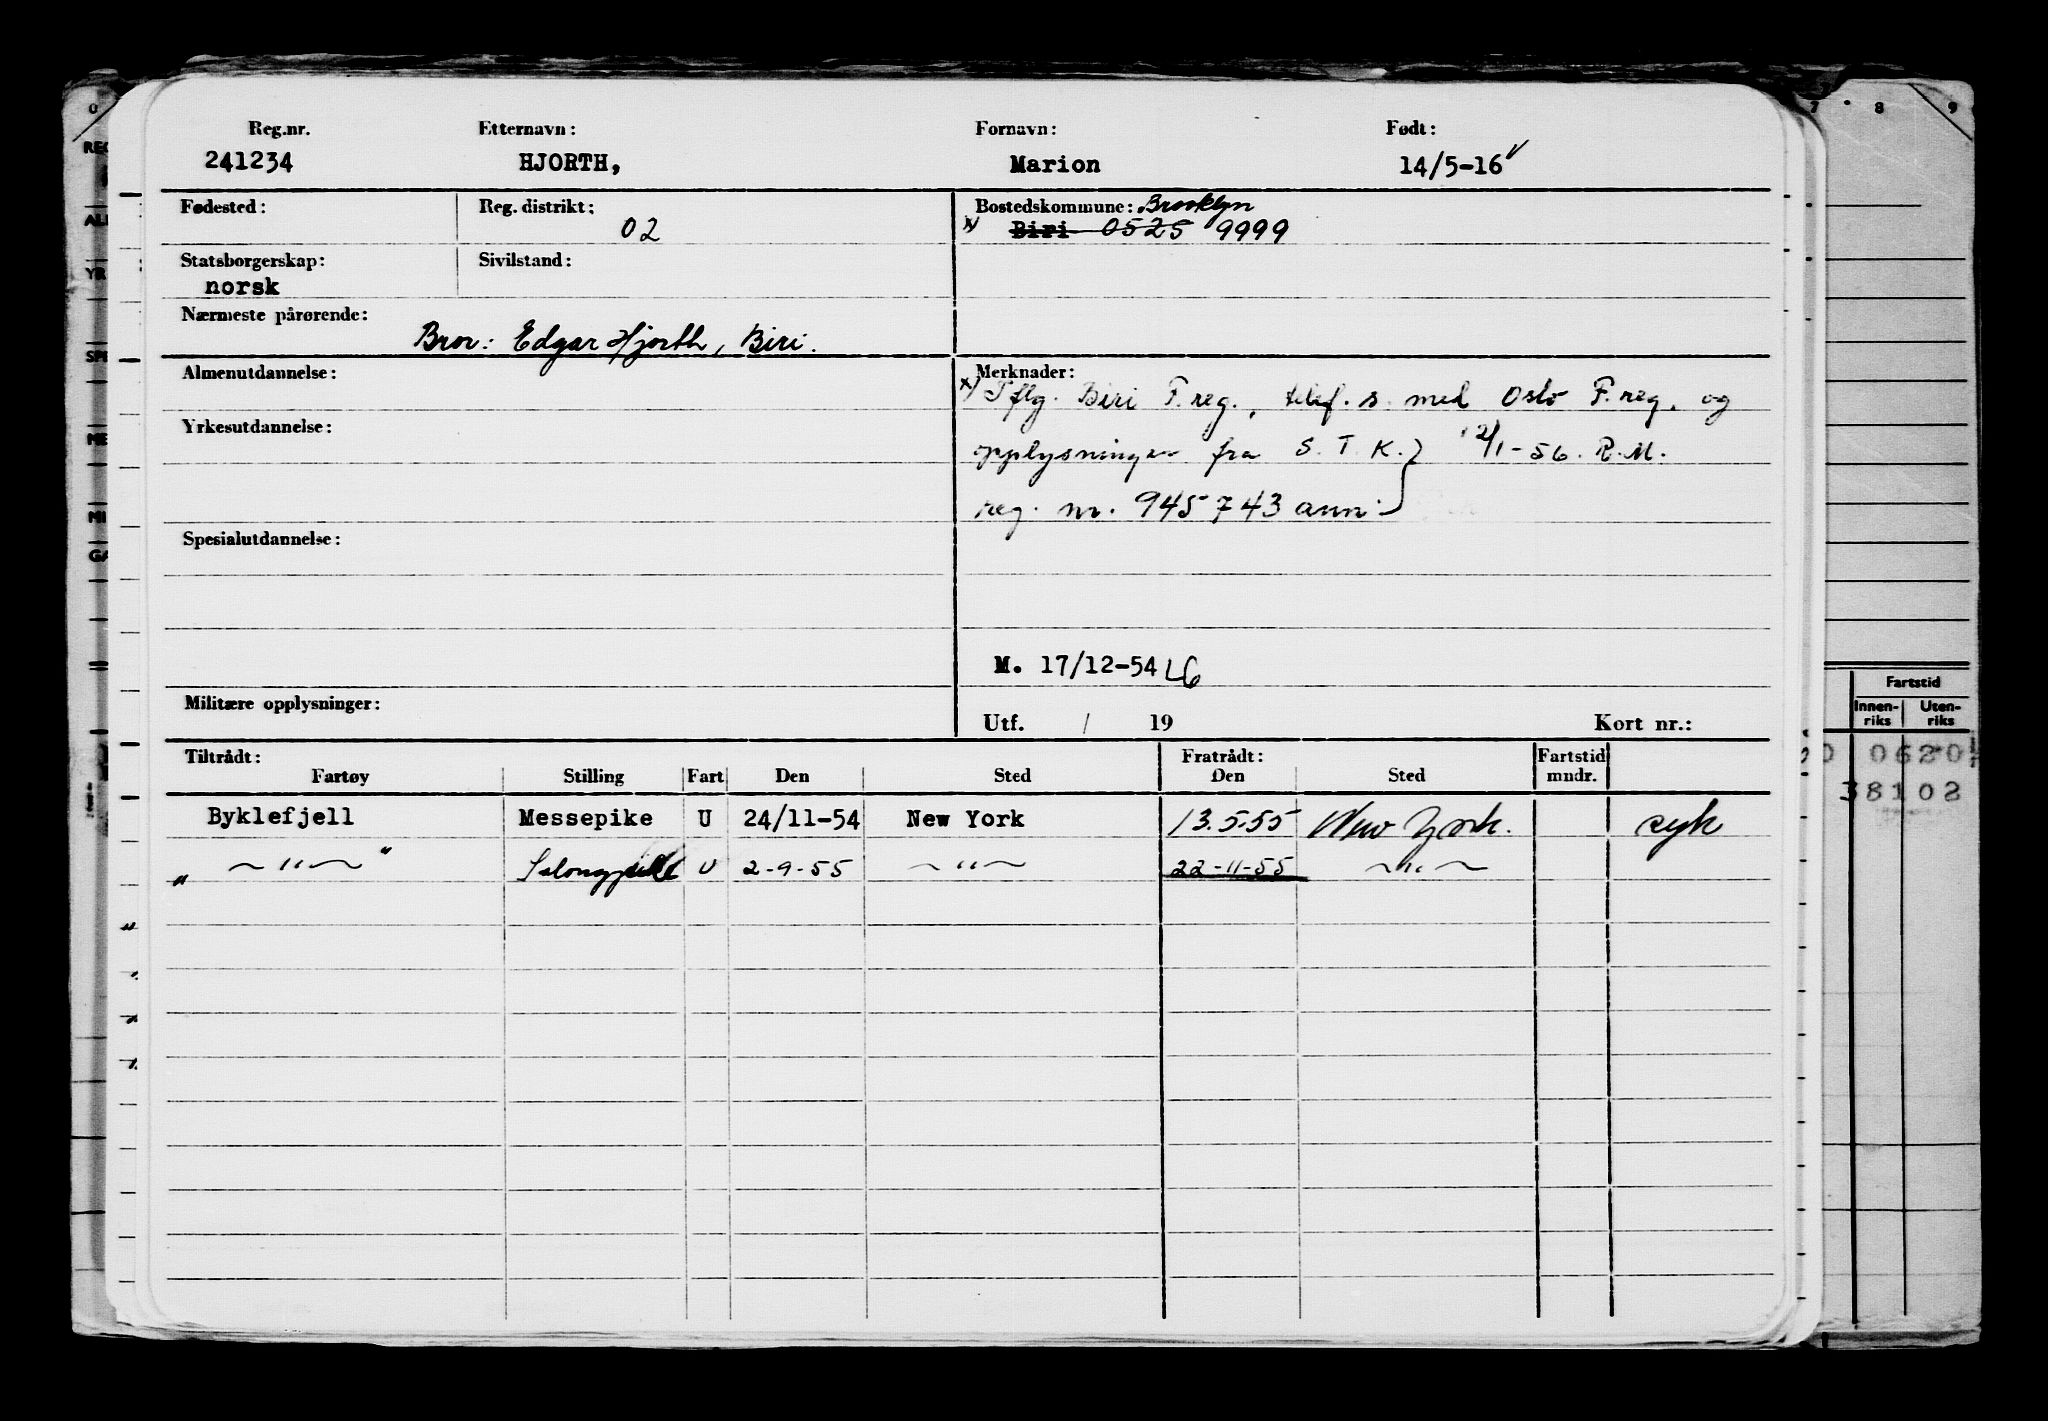 Reg.nr. Etternavn: Fornavn: Født:
241234 HJORTH, Marion 14/5-16 v
Fødested: Reg. distrikt: 02 Bostedskommune: Brooklyn
x/ Biri 0525 9999
Statsborgerskap: Sivilstand:
norsk
Nærmeste pårørende:
Bror: Edgar Hjorth, Biri.
Almenutdannelse: Merknader:
x/ Iflg. Biri F.reg., telef. s. med Oslo F.reg. og
Yrkesutdannelse:
opplysninger fra S. T. K. } 12/1-56. R.M.
reg. nr. 945743 ann.
Spesialutdannelse:
M. 17/12-54 LG
Militære opplysninger:
Utf. / 19 Kort nr.:
Tiltrådt: Fratrådt: Fartstid
Fartøy Stilling Fart Den Sted Den Sted mndr.
Byklefjell Messepike U 24/11-54 New York 13.5.55 New York. syk
" —"— " Salongpike U 2-9-55 —"— 22-11-55 —"—
7 8 9
Fartstid
Innen- Uten-
riks riks
0 0620
38102